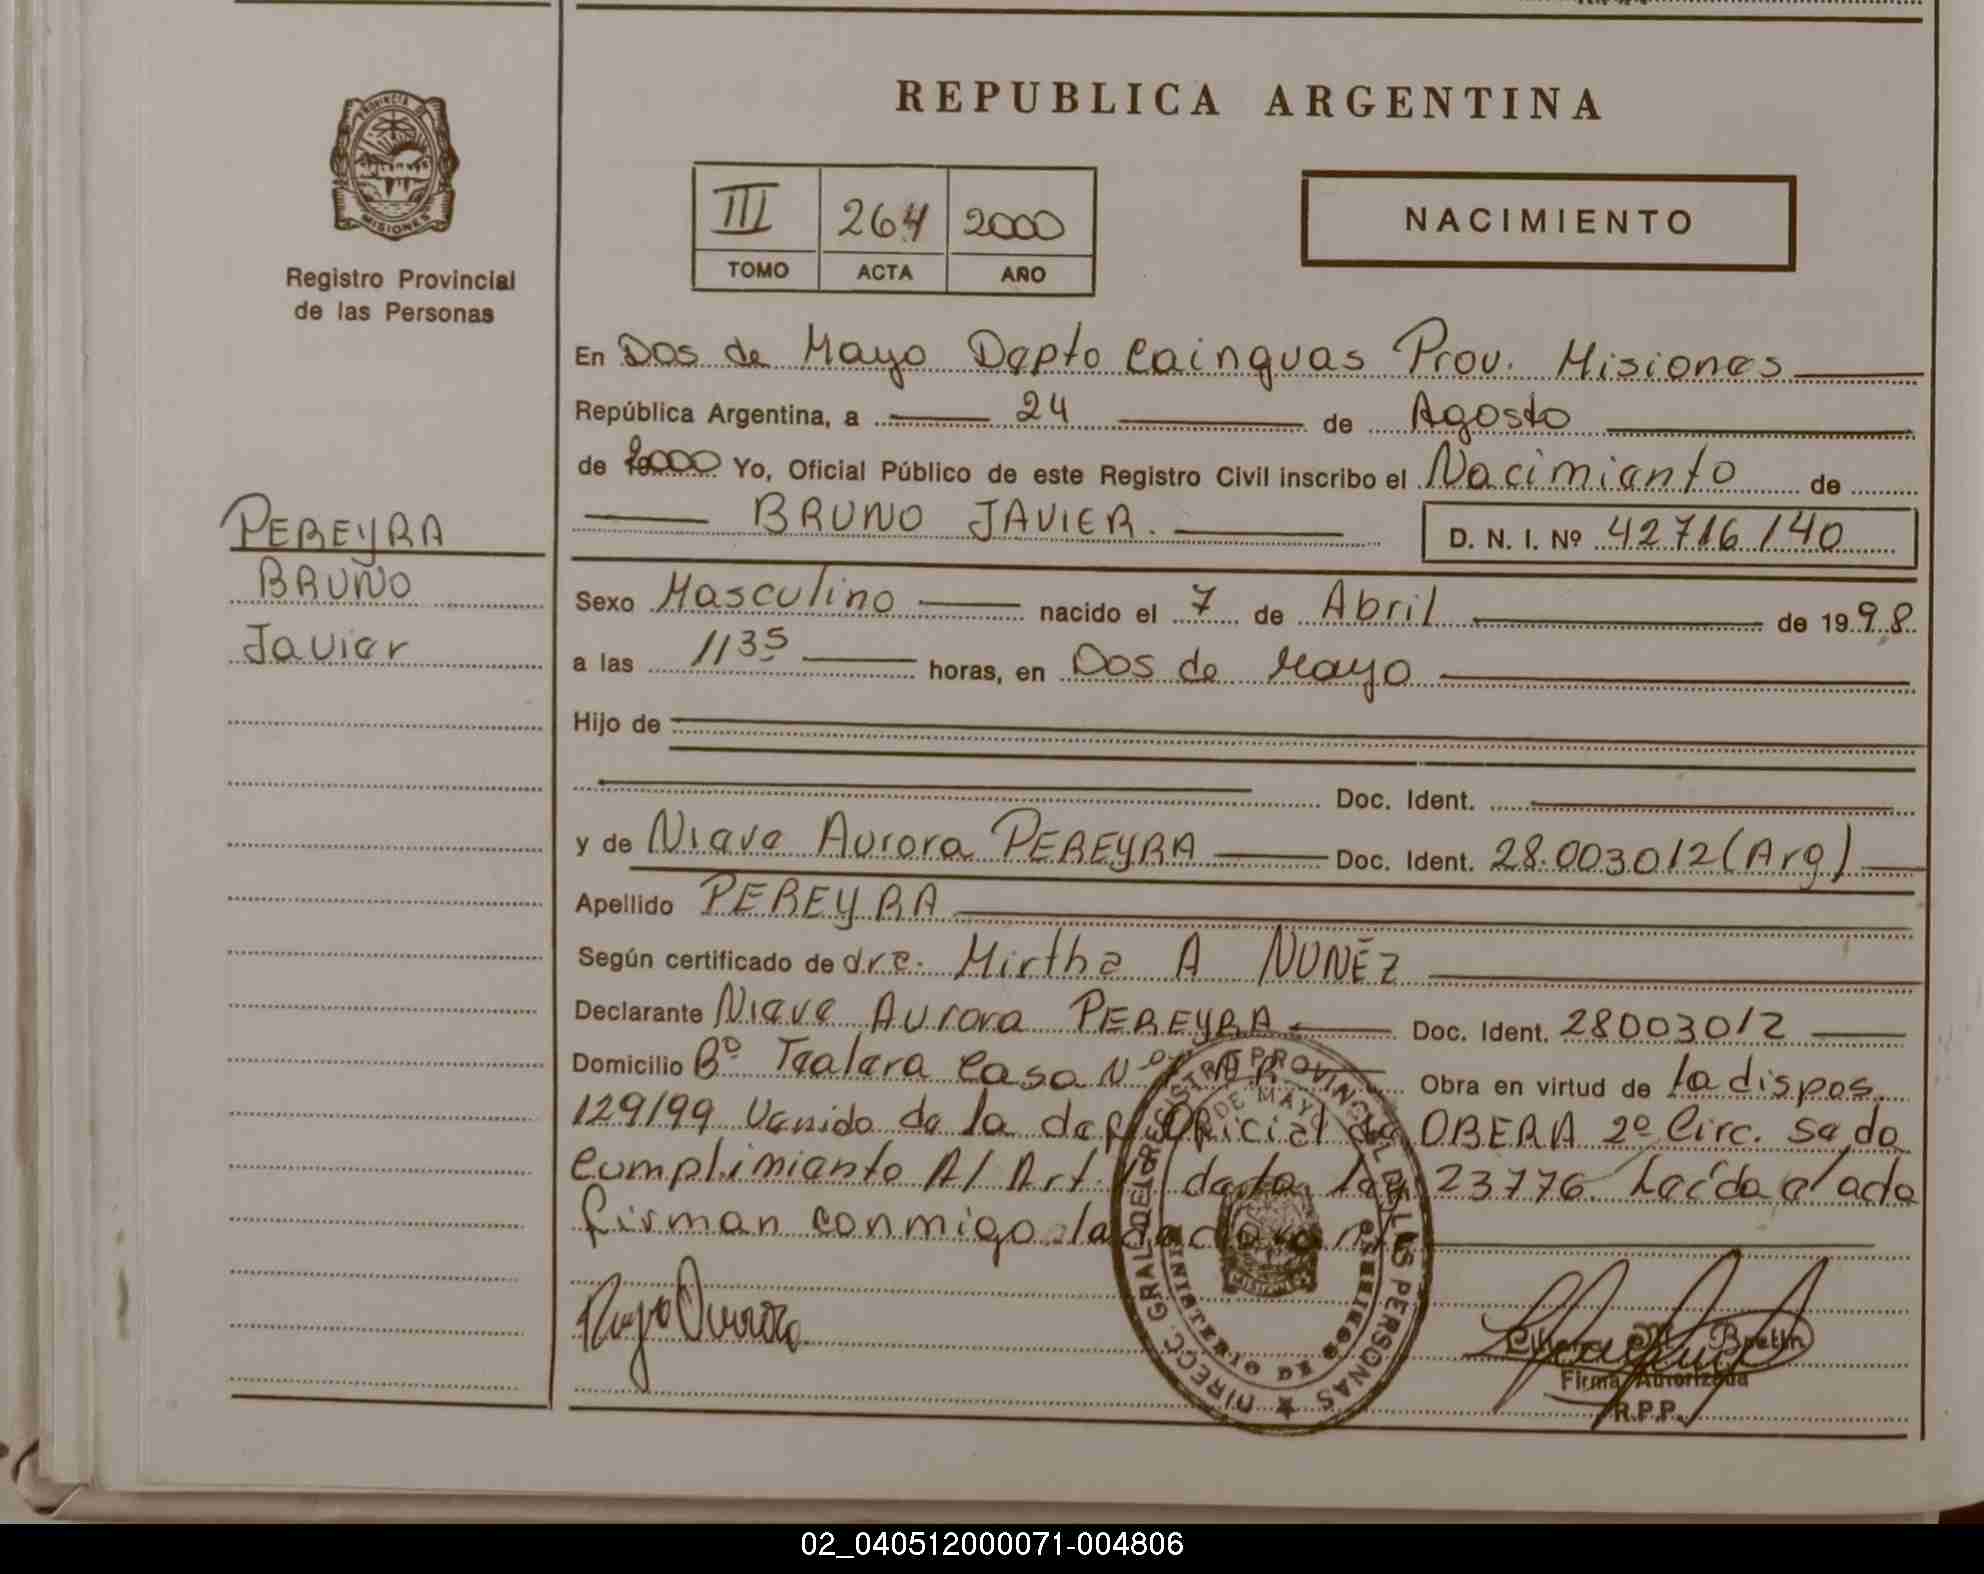 REPUBLICA ARGENTINA
PROVINCIA DE
MISIONES
Registro Provincial
de las Personas
III 264 2000
TOMO ACTA AÑO
NACIMIENTO
En Dos de Mayo Depto Cainguas Prov. Misiones
República Argentina, a 24 de Agosto
de 2000 Yo, Oficial Público de este Registro Civil inscribo el Nacimiento de
BRUNO JAVIER. D. N. I. Nº 42716140
PEREYRA
BRUNO
Javier
Sexo Masculino nacido el 7 de Abril de 1998
a las 1135 horas, en Dos de Mayo
Hijo de
Doc. Ident.
y de Nieve Aurora PEREYRA Doc. Ident. 28.003012 (Arg)
Apellido PEREYRA
Según certificado de dra. Mirtha A NUNEZ
Declarante Nieve Aurora PEREYRA Doc. Ident. 28003012
Domicilio Bº Casa Nº Obra en virtud de la dispos.
129/99 Venido de la Oficial de OBERA 2º Circ. se da
cumplimiento A/ Art. 23776. Leída el acta
firman conmigo la declarante
DIRECC. GRAL DEL REGISTRO PROVINCIAL DE LAS PERSONAS
DE MAYO
MINISTERIO DE GOBIERNO
MISIONES
Aurora
Bretin
Firma Autorizada
R.P.P.
02_040512000071-004806